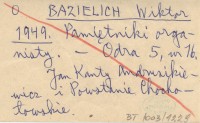 O BAZIELICH Wiktor
1949. Pamiętniki orga-
nisty. – Odra 5, nr 16.
Jan Kanty Andrusikie-
wicz i Powstanie Chocho-
łowskie.
BT 1003/1229